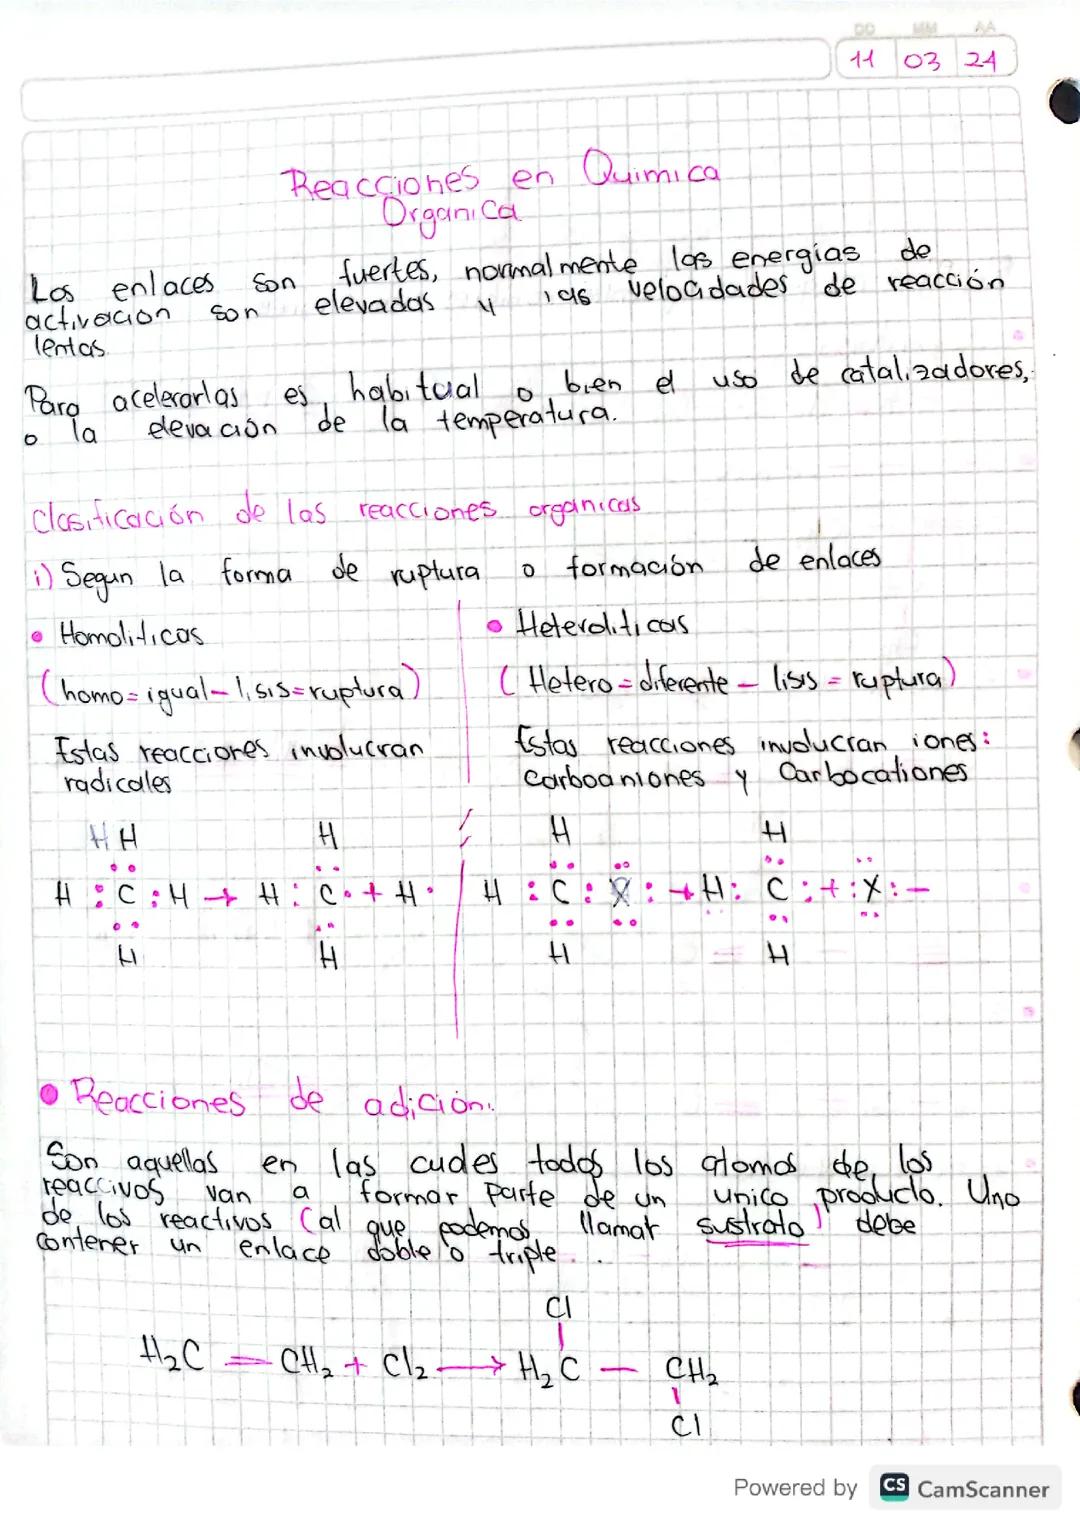 DD MM AA
11 03 24
Reacciones en Quimica
Organica
Los enlaces son fuertes, normalmente las energías de
activación son elevadas y las velocidades de reacción
lentas.
Para acelerarlas es habitual o bien el uso de catalizadores,
o la elevación de la temperatura.
Clasificación de las reacciones organicas
i) Segun la forma de ruptura o formación de enlaces
• Homoliticas
(homo=igual-lisis=ruptura)
Estas reacciones involucran
radicales
H H H
H : C : H → H : C · + H ·
H H
• Heteroliticas
(Hetero = diferente - lisis = ruptura)
Estas reacciones involucran iones:
Carboaniones y Carbocationes
H H
H : C : X : → H : C : + : X : -
H H
• Reacciones de adición.
Son aquellas en las cuales todos los atomos de los
reaccivos van a formar parte de un unico producto. Uno
de los reactivos (al que podemos llamar sustrato) debe
contener un enlace doble o triple...
Cl
H₂C = CH₂ + Cl₂ → H₂C - CH₂
Cl
Powered by CS CamScanner